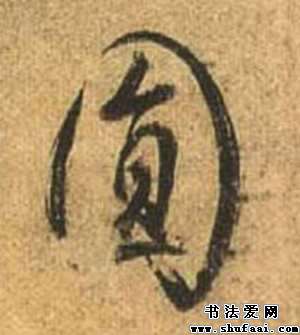 圓
书法爱网
www.shufaai.com